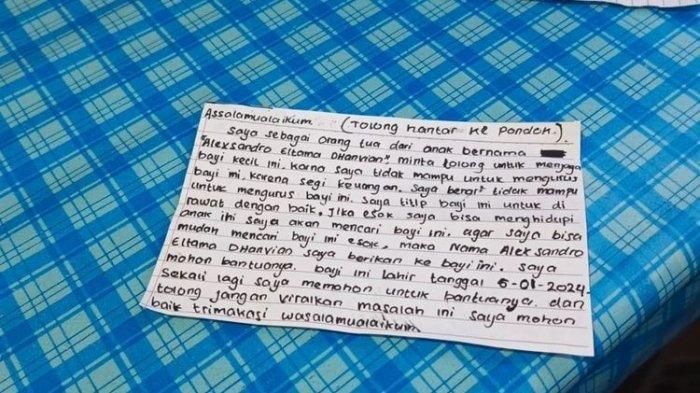 Assalamualaikum. (Tolong hantar ke Pondok.).
Saya sebagai orang tua dari anak bernama
"Alexsandro Eltama DHanvian" minta tolong untuk menjaga
bayi kecil ini. karna saya tidak mampu untuk mengurus
bayi ini. karena segi keuangan. saya benar² tidak mampu
untuk mengurus bayi ini. saya titip bayi ini untuk di
rawat dengan baik. Jika esok saya bisa menghidupi
anak ini saya akan mencari bayi ini. agar saya bisa
mudah mencari bayi ini esok, maka Nama Alexsandro
Eltama DHanvian saya berikan ke bayi ini. saya
mohon bantuanya. bayi ini lahir tanggal 6-01-2024.
Sekali lagi saya memohon untuk bantuanya. dan
tolong jangan viralkan masalah ini saya mohon
baik trimakasi wasalamualaikum